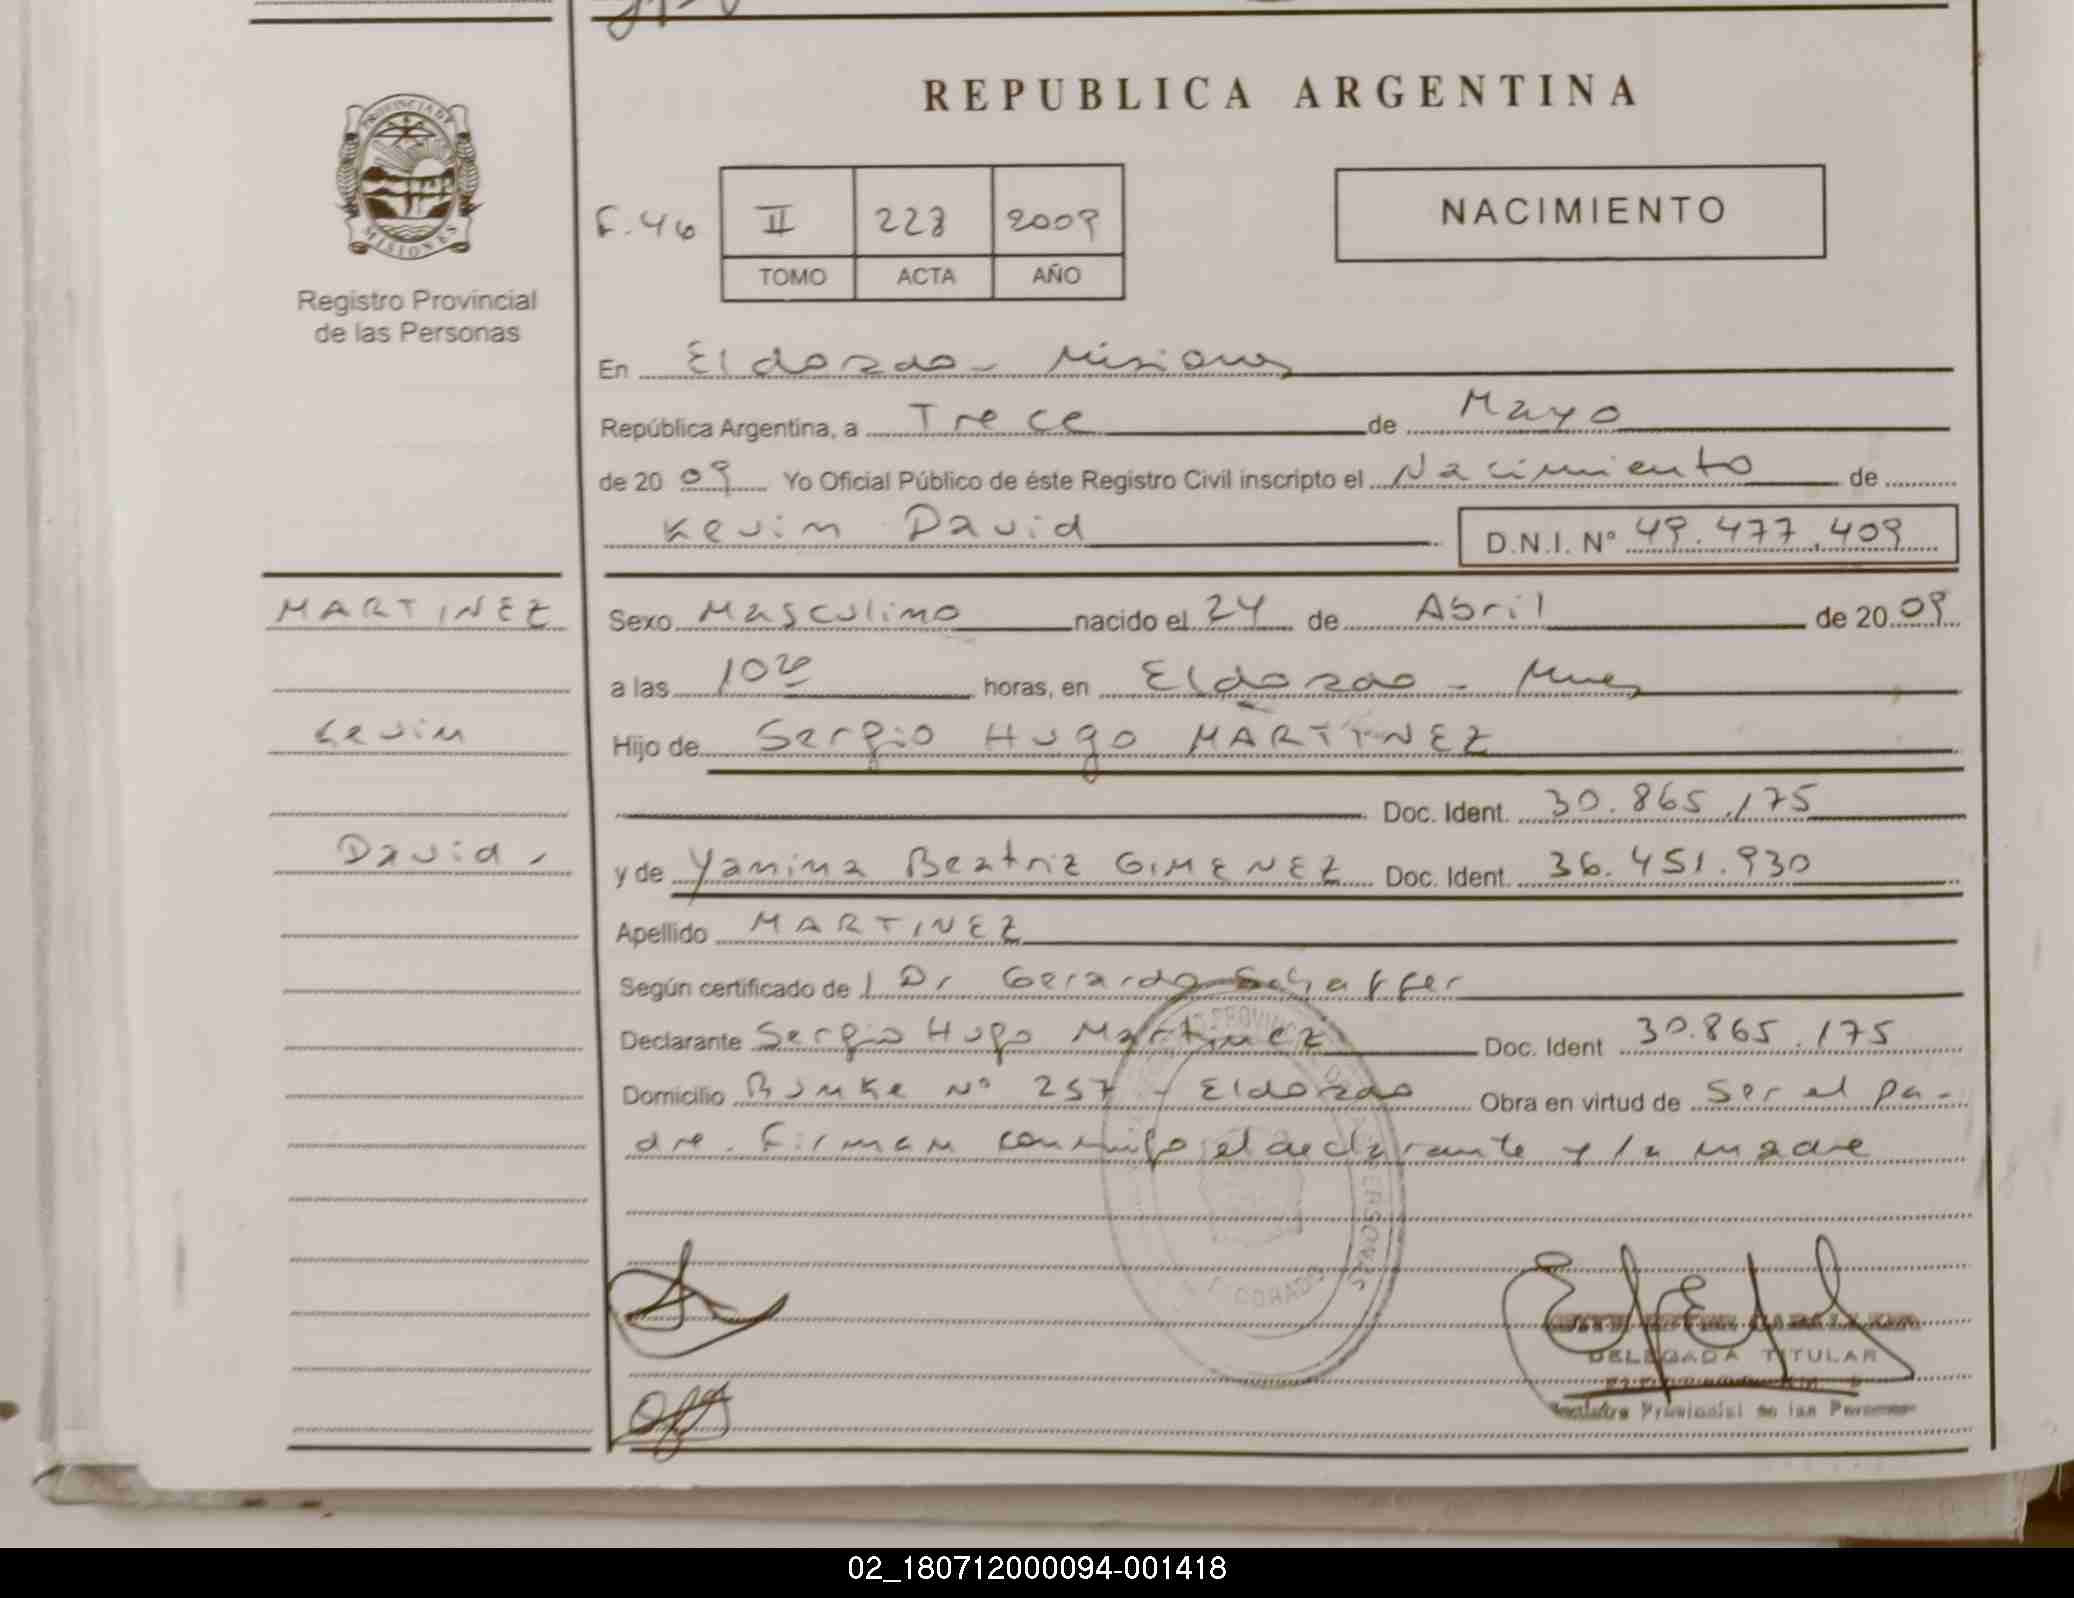 REPUBLICA ARGENTINA
PROVINCIA DE
MISIONES
Registro Provincial
de las Personas
F. 46
II 223 2009
TOMO ACTA AÑO
NACIMIENTO
En Eldorado - Misiones
República Argentina, a Trece de Mayo
de 20 09 Yo Oficial Público de éste Registro Civil inscripto el Nacimiento de
Kevin David D.N.I. Nº 49.477.409
MARTINEZ
Kevin
David
Sexo Masculino nacido el 24 de Abril de 20 09
a las 10 20 horas, en Eldorado - Mnes
Hijo de Sergio Hugo MARTINEZ
Doc. Ident. 30.865.175
y de Yanina Beatriz GIMENEZ Doc. Ident. 36.451.930
Apellido MARTINEZ
Según certificado de l Dr Gerardo Schaffer
Declarante Sergio Hugo Martinez Doc. Ident 30.865.175
Domicilio Nº 257 - Eldorado Obra en virtud de Ser el pa-
dre. Firman conmigo el declarante y la madre
DELEGADA TITULAR
Registro Provincial de las Personas
02_180712000094-001418